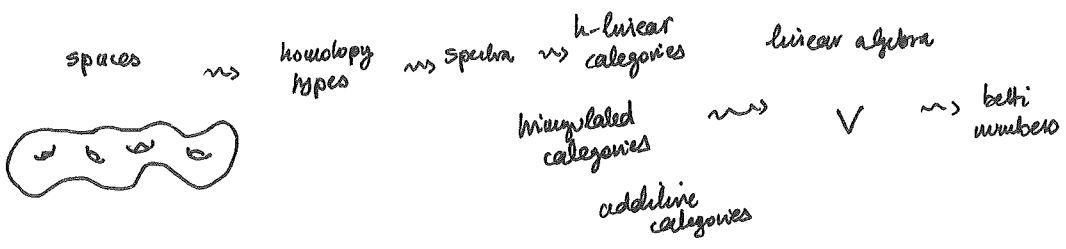 spaces ⇝ homotopy types ⇝ spectra ⇝ k-linear categories
linear algebra
triangulated categories ⇝ V ⇝ betti numbers
additive categories